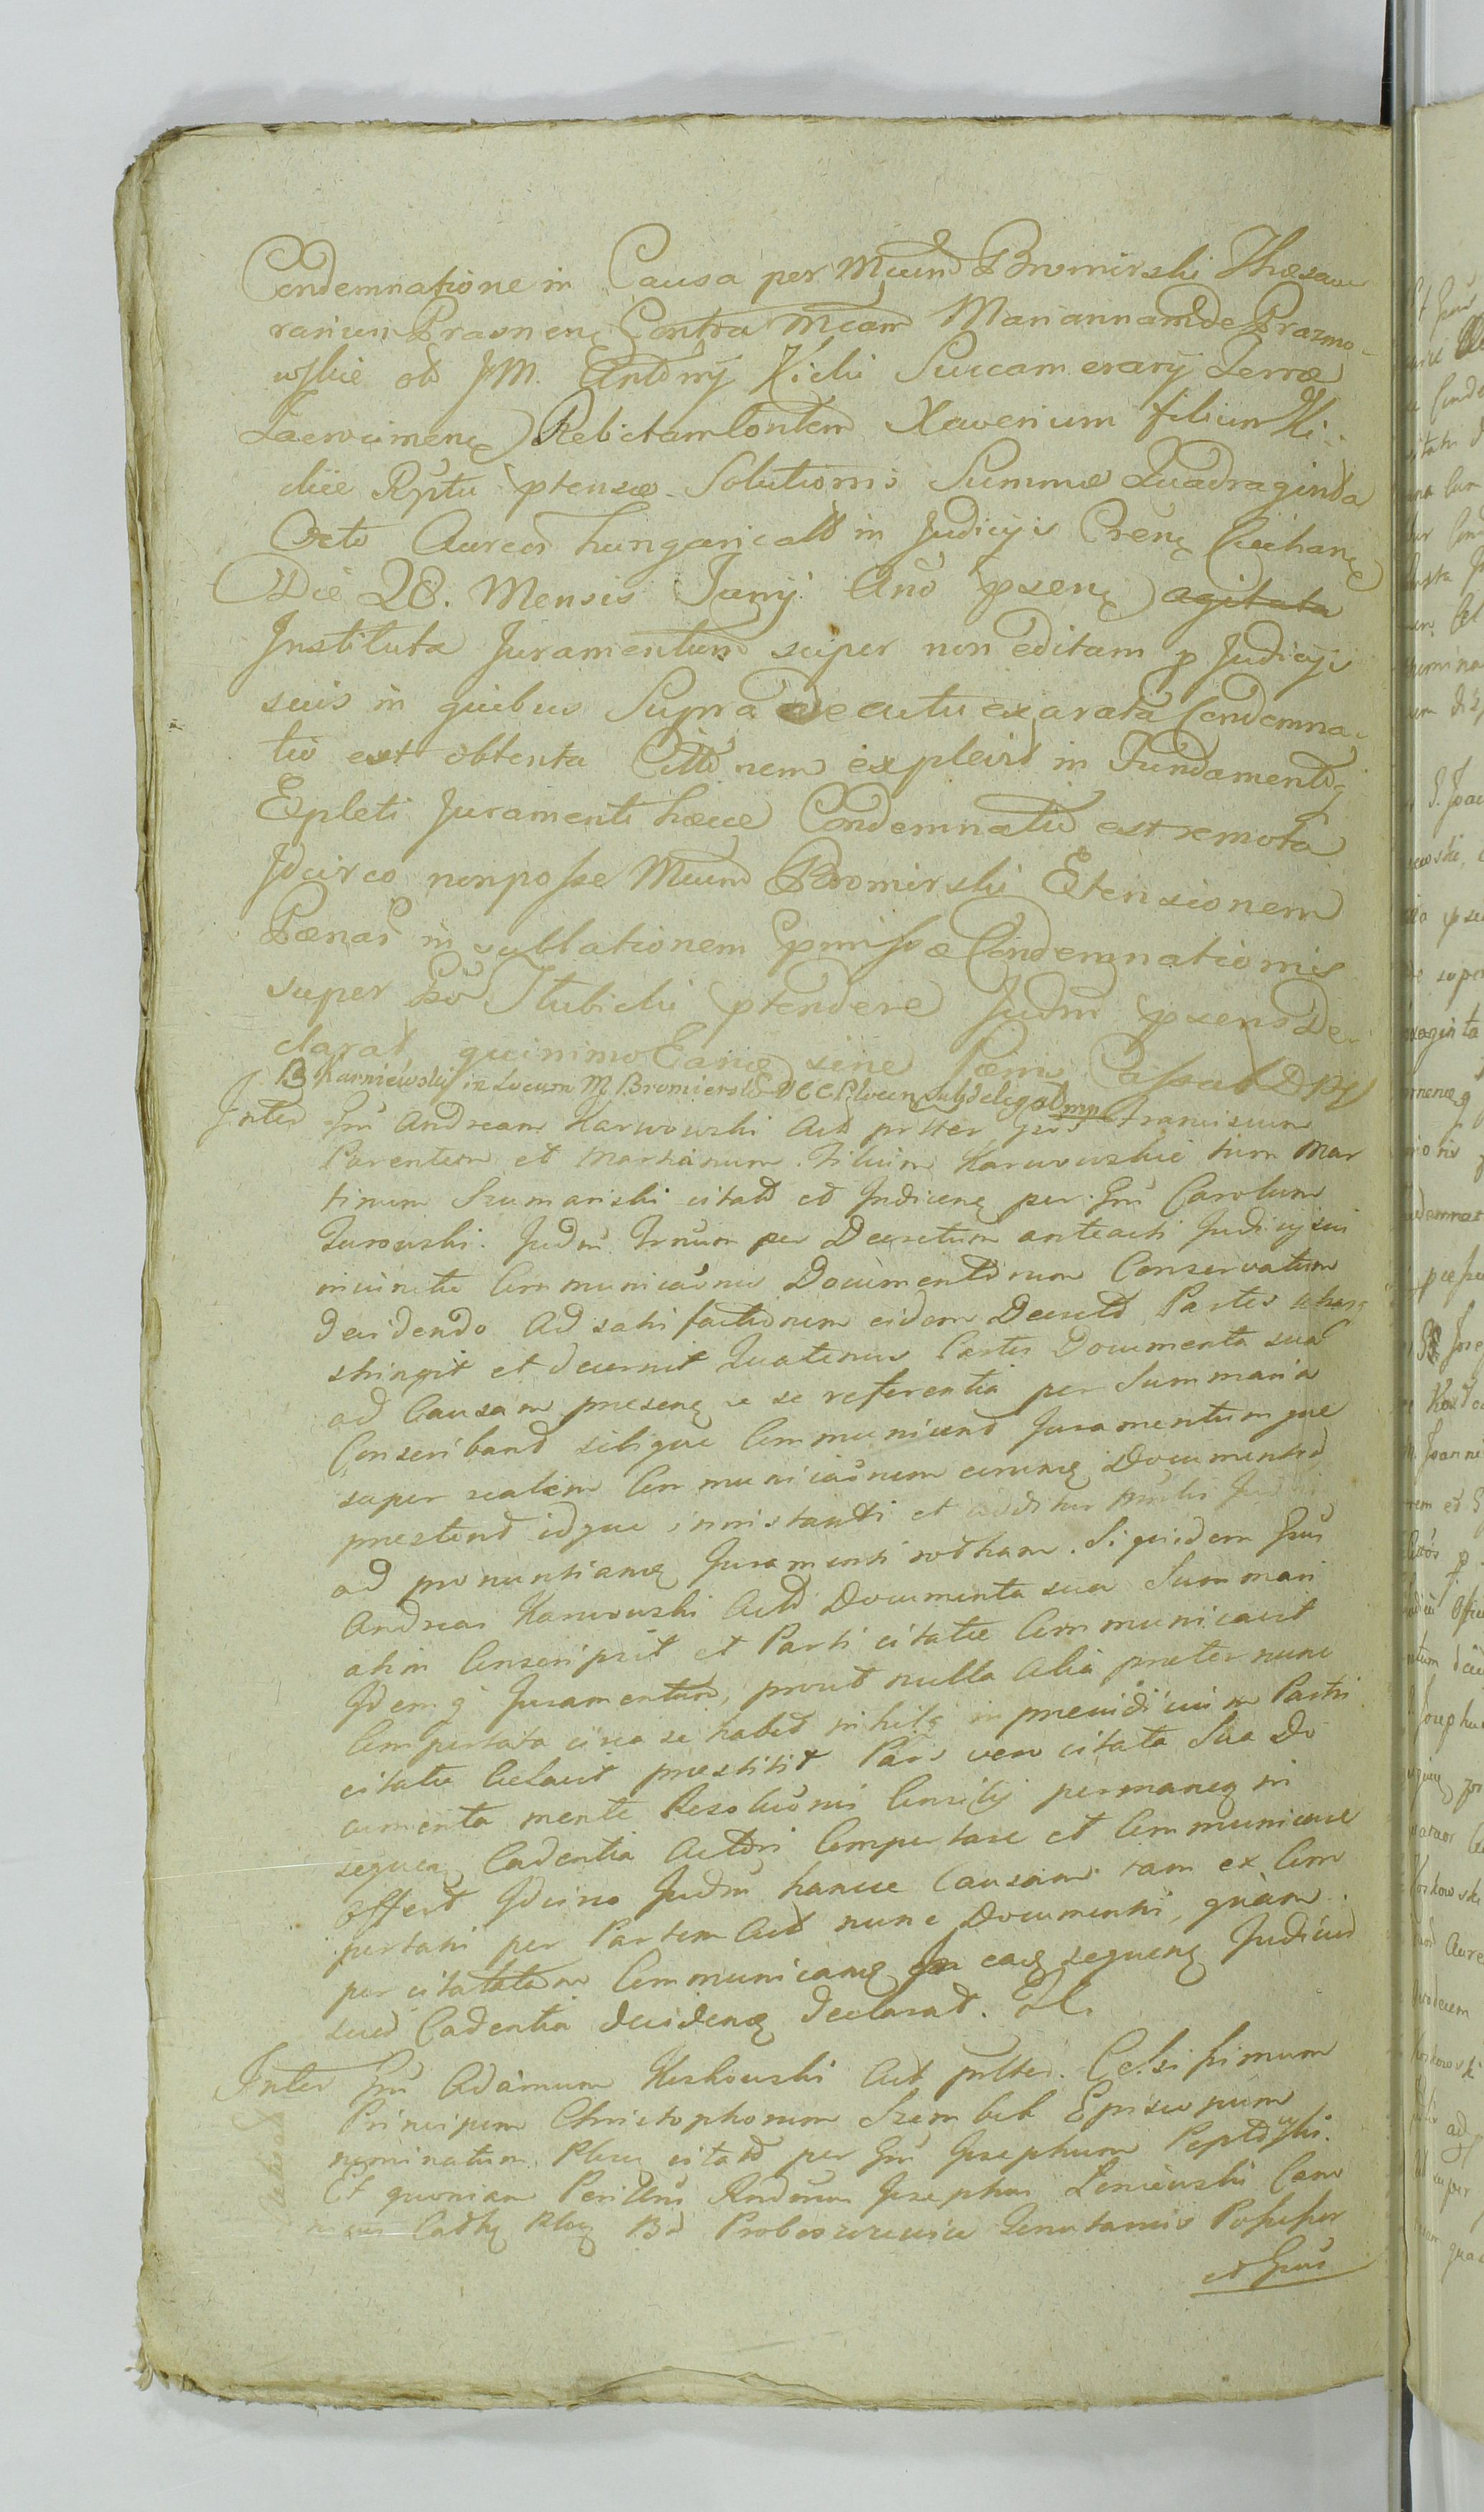 Condemnatione in Causa per Mcum Bromirski Thesau
rarium Prasnen Contra Mcam Mariannam de Prazmo-
wskie olim JM. Antony Kicki Succamerary Terræ
Relictam tontem Xaverium filium Ki-
ckie Rptu ptensæ Solutionis Summæ Quadraginta
Octo Aureor hungaricall in Judicys Cren Ciechan
Die 28. Mensis Jany Ano psen agitata
Instituta Juramentum super non editam p Judicys
suis in quibus Supra de actu exarata Condemna-
tio est obtenta Cittõnem explevit in Fundamento
Expleti Juramenti hæcce Condemnatio est remota
Idcirco non posse Mcum Bromirski Extensionem
Pænar in sublationem pmissæ Condemnationis
super Gso Stubicki ptendere Judm psens De-
clarat, quinimo Eang sine Pæna Cassat DPS
B Karniewski in Locum M. Bromierski DCC Plocen Subdelegat mp
Inter Gm Andream Karwowski Act prtter Gsos Franciscum
Parentem et Martianum Filium Karwowskie tum Mar
tinum Szumanski citatt et Indicen per Gm Carolum
Turowski. Judm Trnum per Decretum anteacti Judicy sui
intuitu Communicaonis Documentorum Conservatum
decidendo Ad satisfactionem eidem Decreto Partes
stringit et decernit Quatenus Partes Documenta sua
ad Causam presen e se referentia per Summaria
Conscribant sibique Communicent Juramentumque
super realem Communicaonem eorum Documentor
prestent idque instanti et additur
ad pronuntiane Juramenti rotham. Siquidem Gsus
Andreas Karwowski Actor Documenta sua Summari
atim Conscripsit et Parti citatæ Communicavit
Idemq Juramentum, prout nulla alia preter nunc
Comportata circa se habet nihilq in preiudicium Partis
citatæ Celavit prestitit Pars vero citata Sua Do
cumenta mente Resoluonis Consily permanen in
sequen Cadentia Actori Comportare et Communicare
offert Idcirco Judm hancce Causam tam ex Com
portatis per Partem Act nunc Documentis, quàm
per citatam Communican in eaq sequen Judicior
suor Cadentia deciden declarat. PL.
Inter Gm Adamum Kiskowski Act prtter. Celsissimum
Principem Christophorum Szembek Episcopum
nominatum Ploc citatt per Gm Josephum Peplowski.
Et quoniam Perillris Rndmus Josephus Zeniewski Cano
nicus Cathg Ploc Bd Proboszczewice Tenutarius Possessor
et Gsus